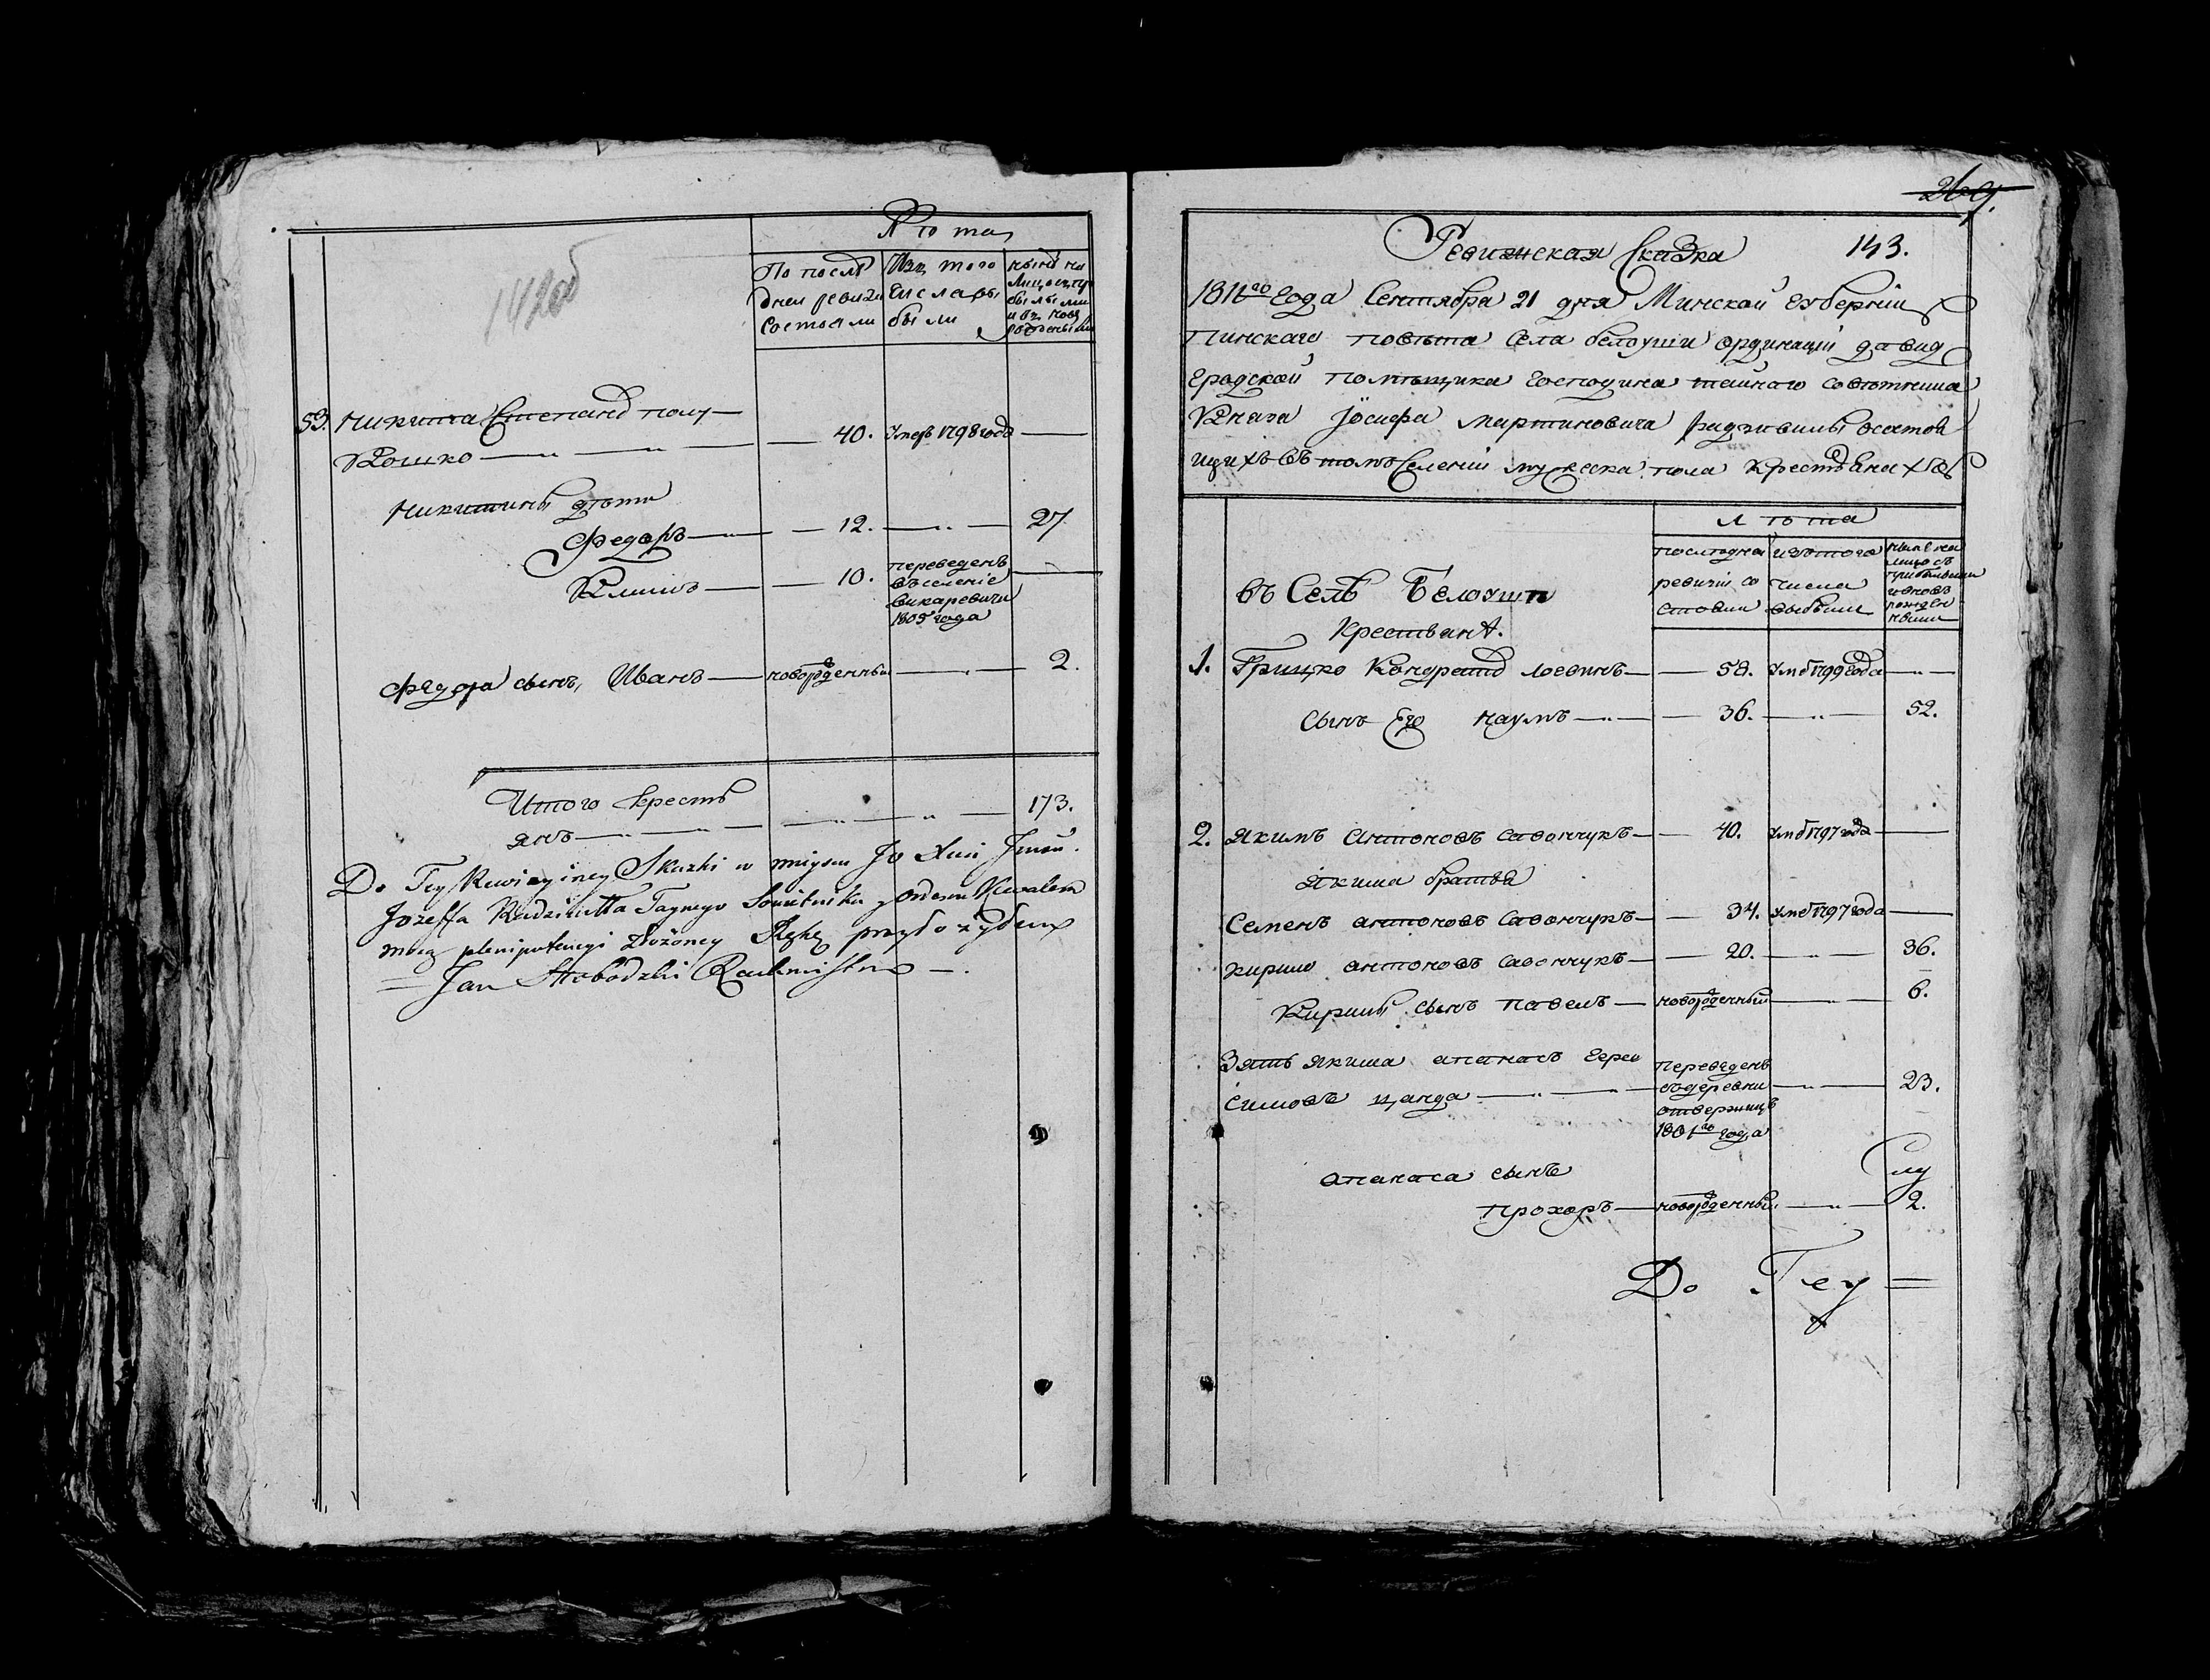 142об
Лѣта
По послѣ
дней ревизіи
состояли
Изъ того
числа вы
были
53. Никита Степановъ полу
Кошко — 40. Умеръ 1798 года
Никитины дѣти
Федоръ — 12. — 27
Климъ — 10. переведенъ
въ селеніе
викаревичи
1805 года
Федора сынъ, Иванъ — новорожденный — 2.
Итого кресть
янъ — 173.
Do Tey Rewizyiney Skazki w mieyscu Jo Xcia Jmci
Jozeffa Radziwiłła Taynego Sowietnika y Orderow Kawalera
mocą plenipotencyi złożoney Rękę przyłożyłem
Jan Słobodzki Rachmistrz
269.
Ревижская Сказка 143.
1811го Года Сентября 21 дня Минской губерніи
Пинскаго повѣта села белоуши ординаціи давид
градской помѣщика Господина тайнаго совѣтника
Князя Іосифа Мартиновича Радзивилы осостоя
щихъ въ томъ Селеніи мужеска пола Крестьянахъ
Лѣта
последней
ревизіи со
стояли
изътого
числа
выбыли
нынѣ на
лицо съ
прибылыми
и вновь
рожден
ными
въ Селѣ Белоуши
Крестьянъ.
1. Грицко Кондратовъ Левинъ — 58. Умеръ 1799 года
сынъ Его Наумъ — 36. — 52.
2. Якимъ Антоновъ Савончукъ — 40. Умеръ 1797 года
Якима братья
Семенъ антоновъ Савончукъ — 34. Умеръ 1797 года
Кирило антоновъ Савончукъ — 20. — 36.
Кирилы сынъ Павелъ — новорожденный — 6.
Зять Якима апанасъ Гера
симовъ цанда — переведенъ
въ деревни
отвержицъ
1801го года — 23.
апанаса сынъ
Прохоръ — новорожденный — 2.
Do Tey